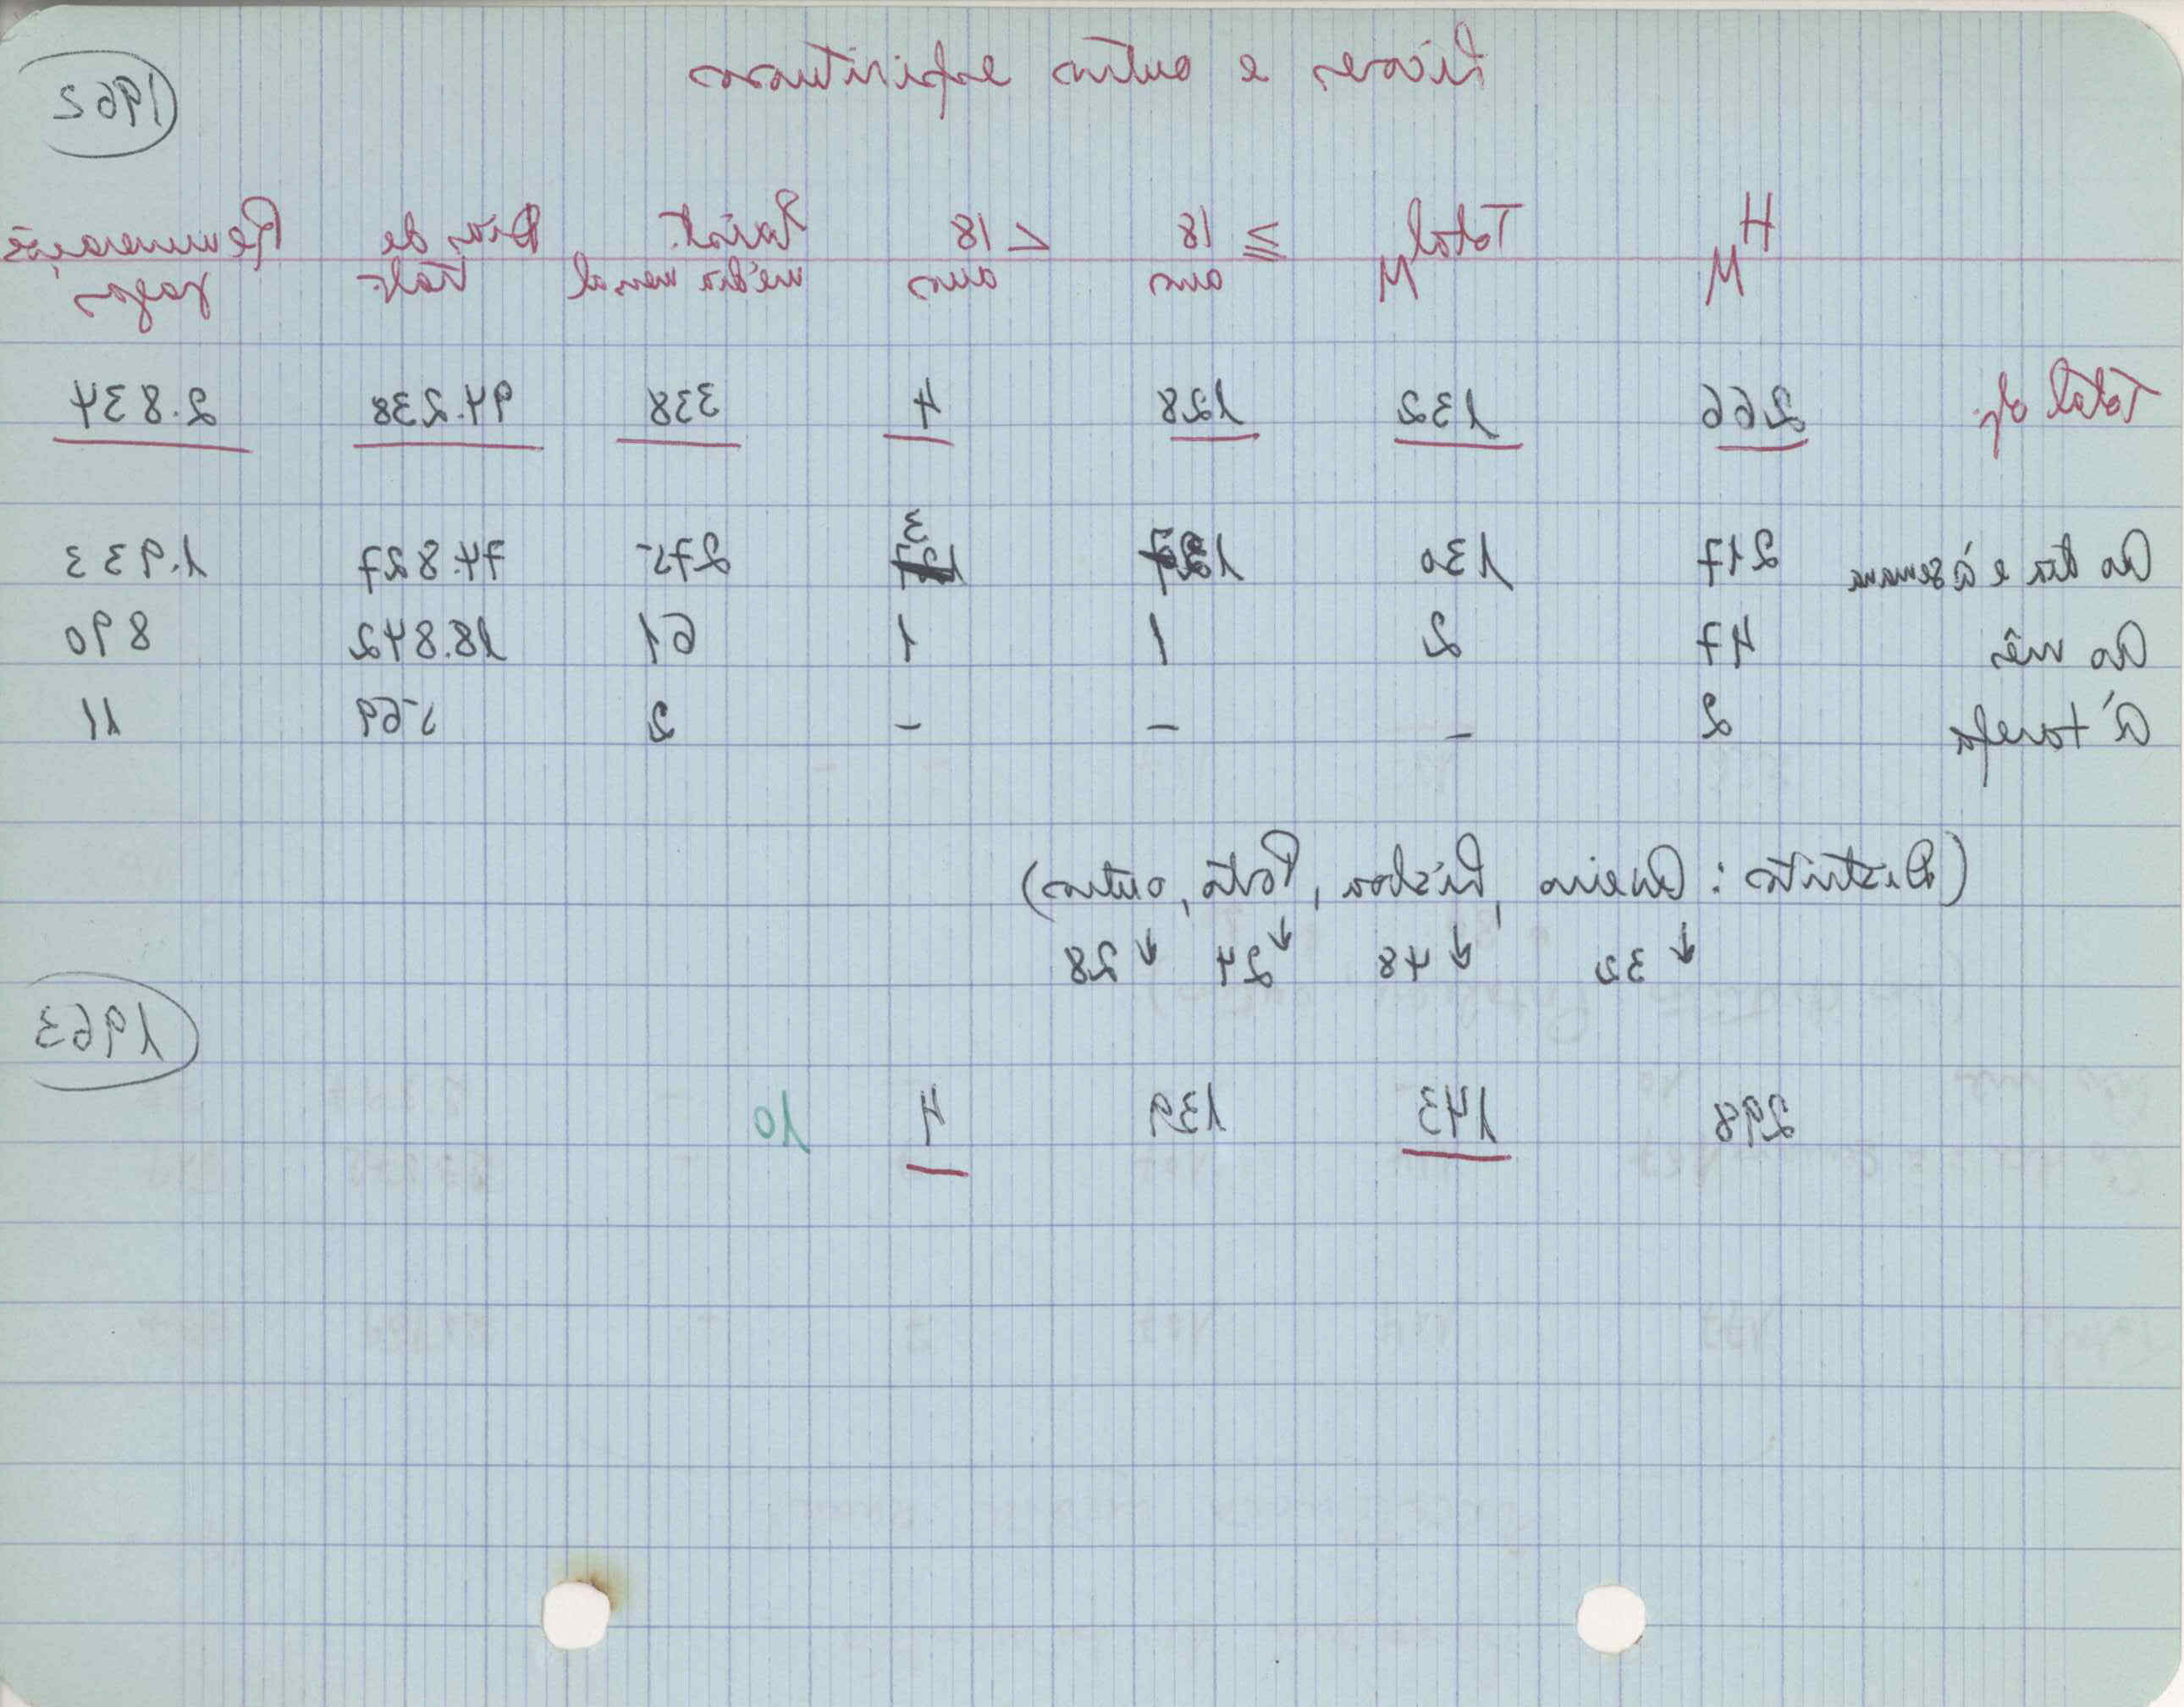 Licores e outros espirituosos
1962
H M Total M ≧ 18 anos < 18 anos Exist. média mensal Dias de trab. Remunerações pagas
Total 266 132 128 4 338 94.238 2.834
Ao dia e à semana 217 130 127 3 275 74.827 1.933
Ao mês 47 2 1 1 61 18.842 890
À tarefa 2 - - - 2 569 11
(Distritos: Aveiro, Lisboa, Porto, outros)
↓ 32 ↓ 48 ↓ 24 ↓ 28
1963
298 143 139 4 10